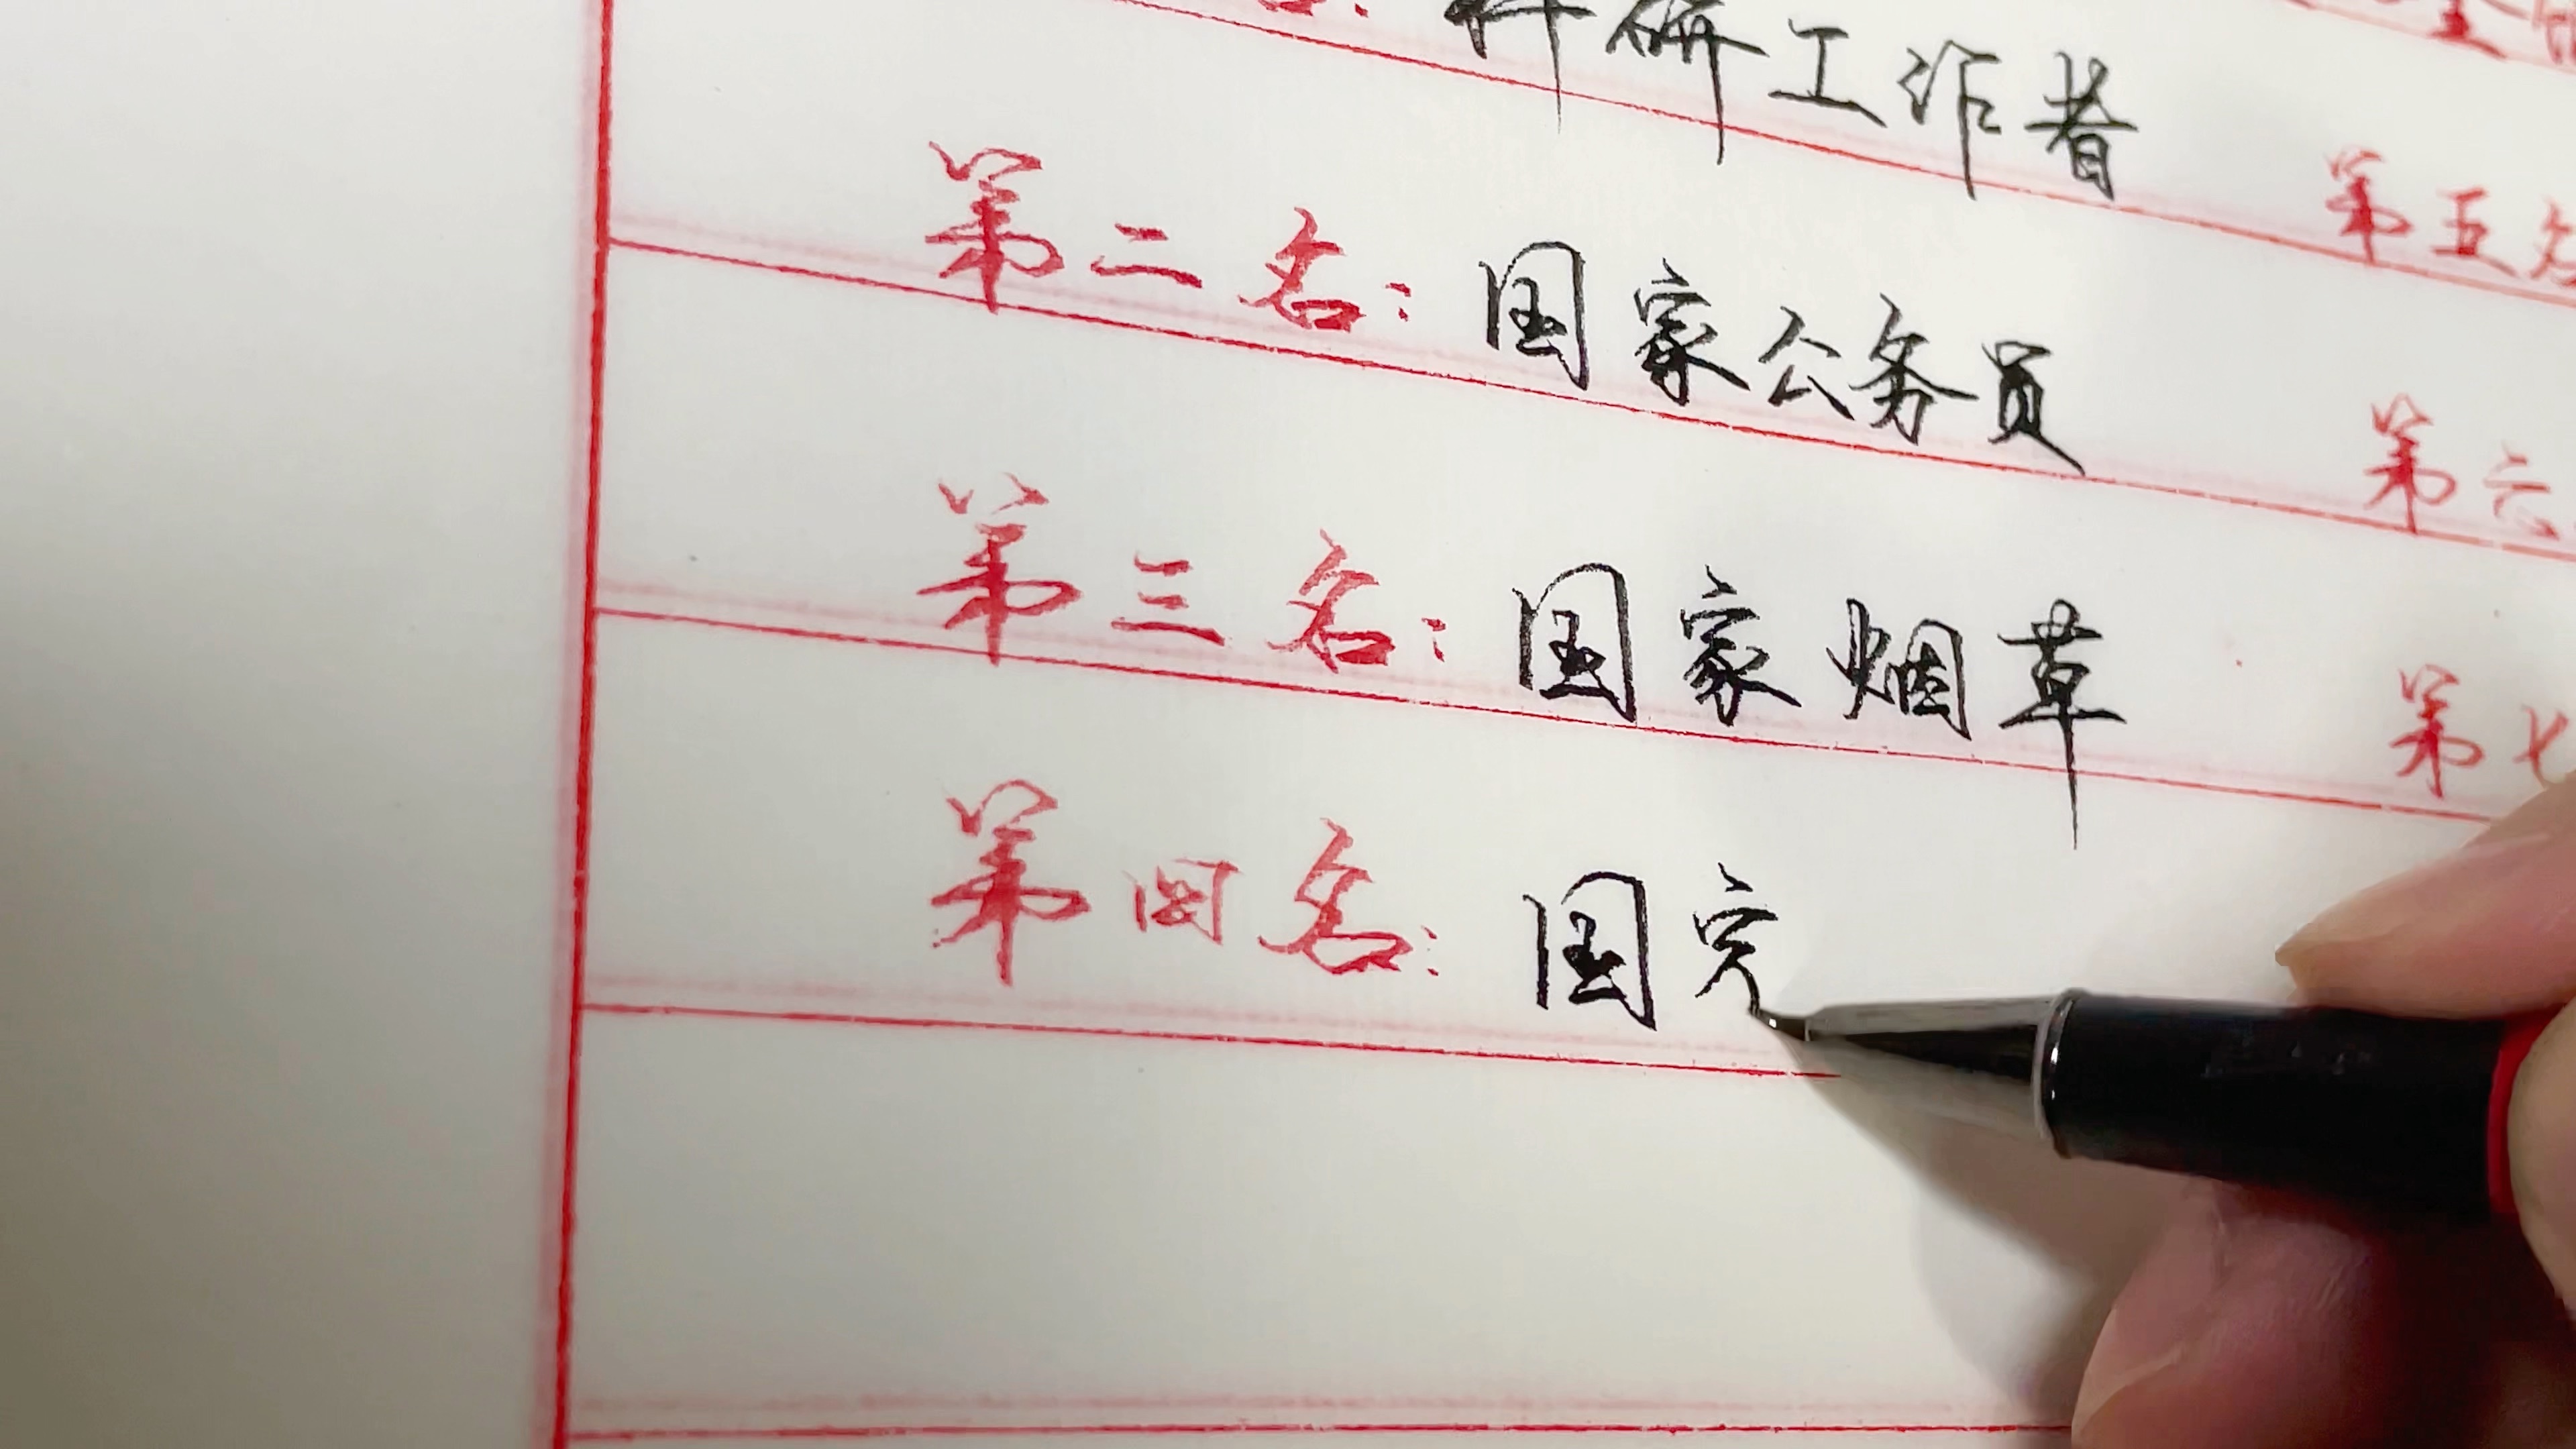 科研工作者
第二名：国家公务员
第三名：国家烟草
第四名：国
第五名
第六
第七